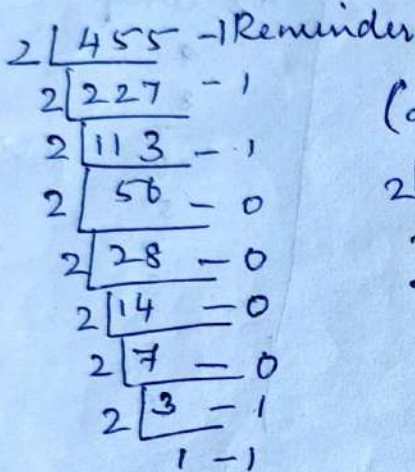 2 455 - 1 Reminder
2 227 - 1
2 113 - 1
2 56 - 0
2 28 - 0
2 14 - 0
2 7 - 0
2 3 - 1
1 - 1
(
2